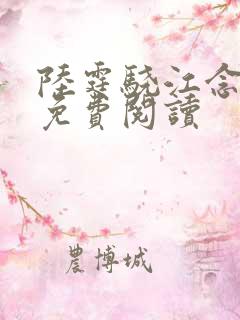 陸霆驍江念
免費閱讀
農博城